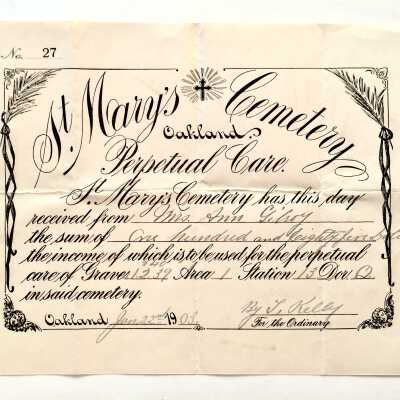 No. 27
St. Mary's Cemetery
Oakland.
Perpetual Care.
St. Mary's Cemetery has, this, day
received from Mrs. Ann Gilroy
the sum of One Hundred and Eighty five
the, income, of which is to be used for the perpetual
care, of Grave 1239 Area 1 Station 13 Dor.
in said cemetery.
Oakland Jan. 22nd 1903.
By T. Kelly
For the Ordinary